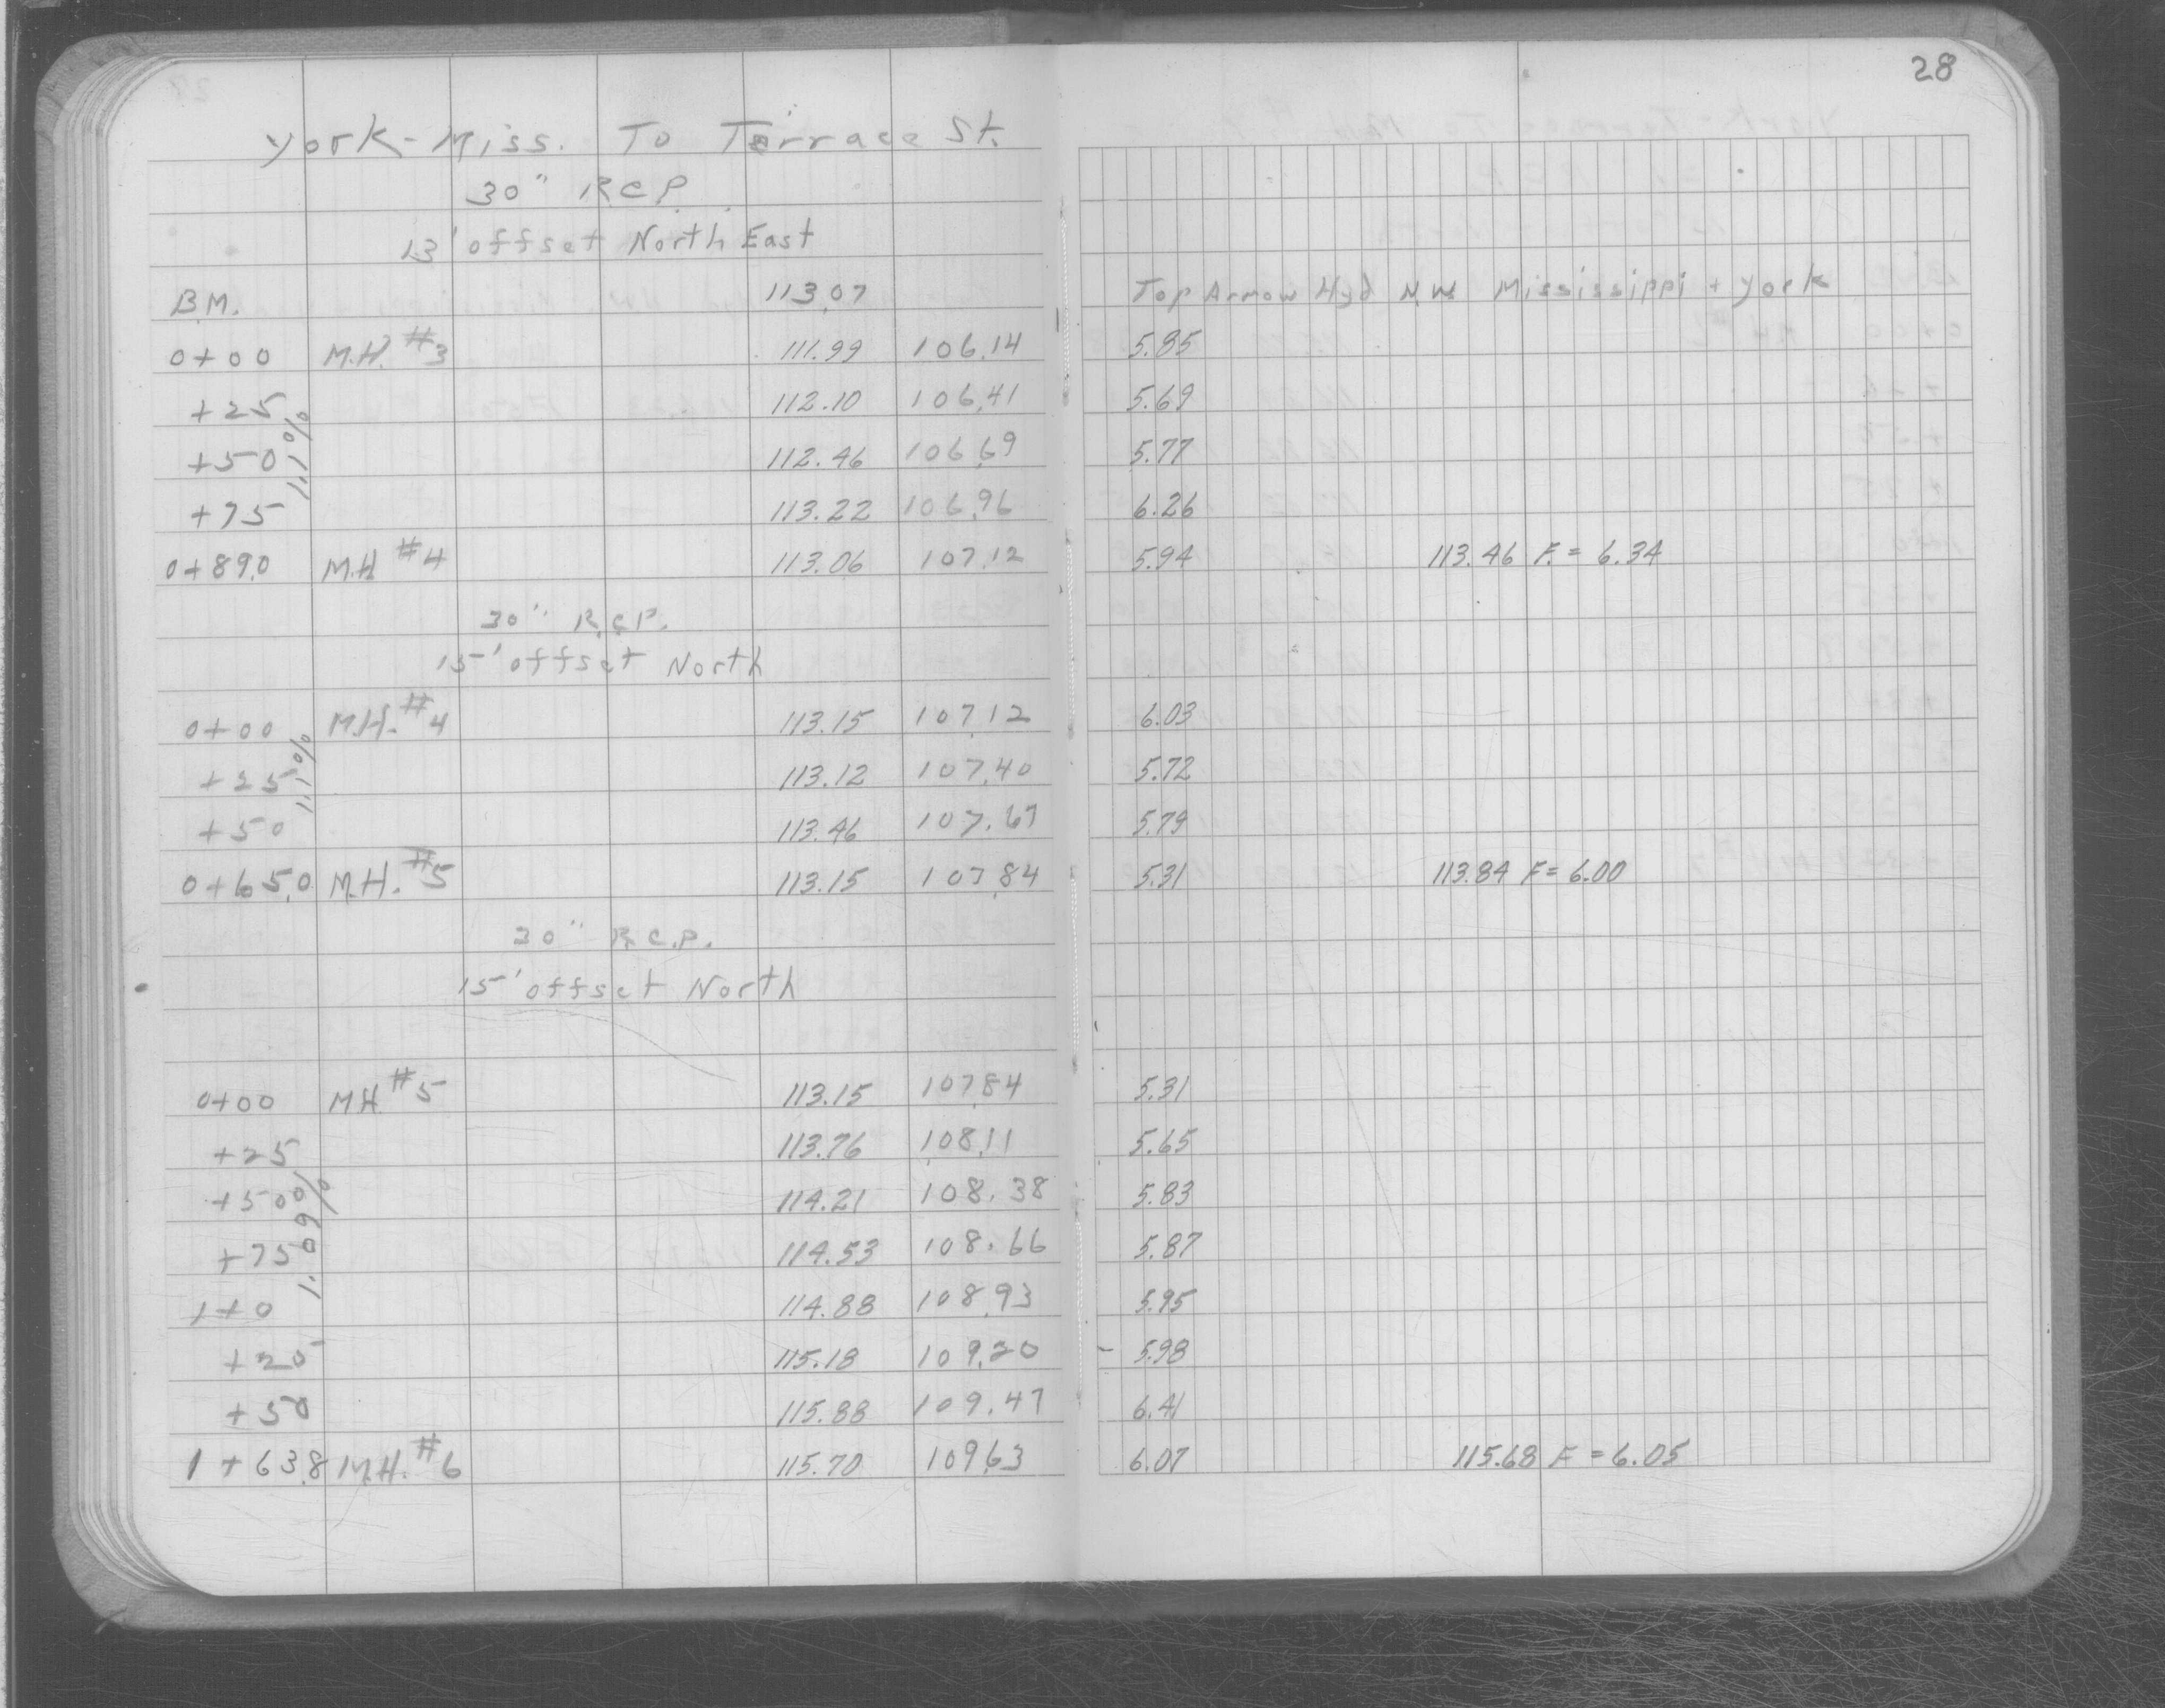 28
York-Miss. To Terrace St.
30" R.C.P.
13' offset North East
B.M. 113.07 Top Arrow Hyd N.W. Mississippi + York
0+00 M.H. #3 111.99 106.14 5.85
+25 112.10 106.41 5.69
+50 112.46 106.69 5.77
+75 113.22 106.96 6.26
1.1%
0+89.0 M.H #4 113.06 107.12 5.94 113.46 F. = 6.34
30" R.C.P.
15' offset North
0+00 M.H. #4 113.15 107.12 6.03
+25 113.12 107.40 5.72
+50 113.46 107.67 5.79
1.1%
0+65.0 M.H. #5 113.15 107.84 5.31 113.84 F = 6.00
30" R.C.P.
15' offset North
0+00 M.H #5 113.15 107.84 5.31
+25 113.76 108.11 5.65
+50 114.21 108.38 5.83
+75 114.53 108.66 5.87
1.09%
1+0 114.88 108.93 5.95
+25 115.18 109.20 - 5.98
+50 115.88 109.47 6.41
1+63.8 M.H. #6 115.70 109.63 6.07 115.68 F = 6.05